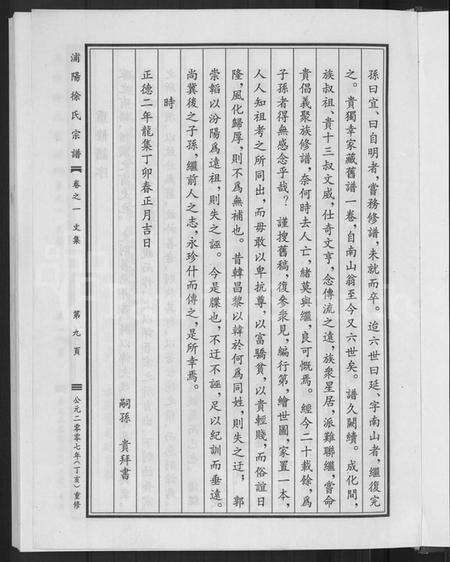 孫曰宜、曰自明者，嘗務修譜，未就而卒。迨六世曰延、字南山者，繼復完
之。貴獨幸家藏舊譜一卷，自南山翁至今又六世矣。譜久闕續。成化間，
族叔祖貴十三叔文威，仕奇文亨，念傳流之遠，族衆星居，派難聯繼，嘗命
貴倡義聚族修譜，奈何時去人亡，緒莫與繼，良可慨焉。經今二十載餘，爲
子孫者得無感念乎哉？謹搜舊稿，復參衆見，編行第，繪世圖，家置一本，
人人知祖考之所同出，而毋敢以卑抗尊，以富驕貧，以貴輕賤，而俗誼日
隆，風化歸厚，則不爲無補也。昔韓昌黎以韓於何爲同姓，則失之迂；郭
崇韜以汾陽爲遠祖，則失之誣。今是牒也，不迂不誣，足以紀訓而垂遠。
尚冀後之子孫，繼前人之志，永珍什而傳之，是所幸焉。
時
正德二年龍集丁卯春正月吉日
嗣孫　貴拜書
浦陽徐氏宗譜　卷之一　文集　第九頁　公元二零零七年（丁亥）重修